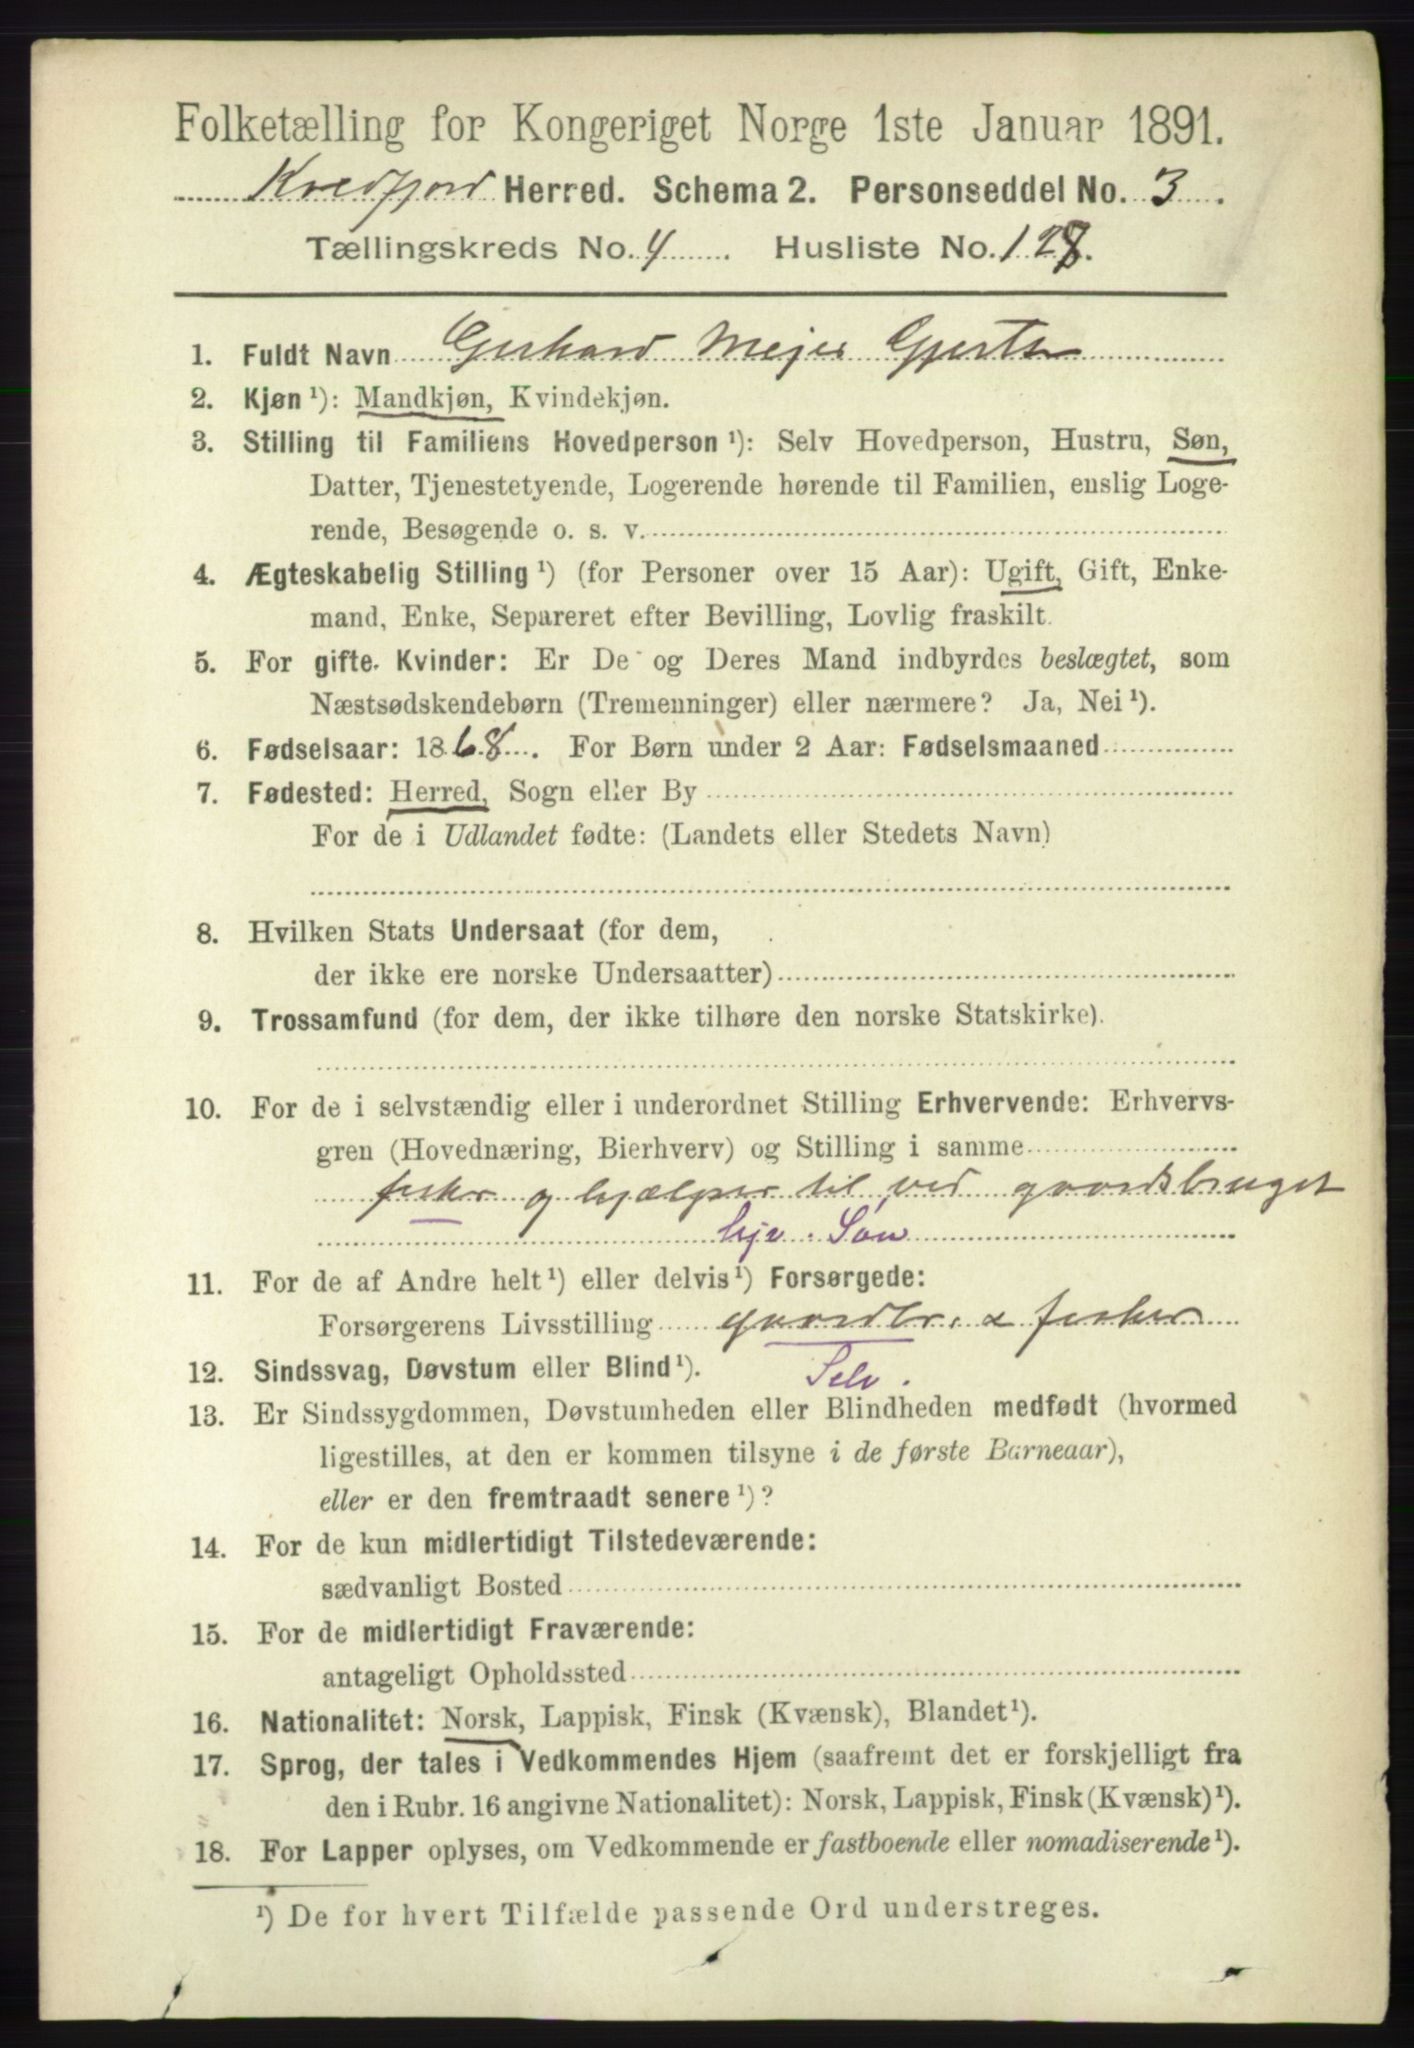 Folketælling for Kongeriget Norge 1ste Januar 1891.
Kvedfjord Herred. Schema 2. Personseddel No. 3.
Tællingskreds No. 4. Husliste No. 128.
1. Fuldt Navn Gerhard Mejer Gjertsen
2. Kjøn ¹): Mandkjøn, Kvindekjøn.
3. Stilling til Familiens Hovedperson ¹): Selv Hovedperson, Hustru, Søn,
Datter, Tjenestetyende, Logerende hørende til Familien, enslig Loge-
rende, Besøgende o. s. v.
4. Ægteskabelig Stilling ¹) (for Personer over 15 Aar): Ugift, Gift, Enke-
mand, Enke, Separeret efter Bevilling, Lovlig fraskilt.
5. For gifte Kvinder: Er De og Deres Mand indbyrdes beslægtet, som
Næstsødskendebørn (Tremenninger) eller nærmere? Ja, Nei ¹).
6. Fødselsaar: 1868. For Børn under 2 Aar: Fødselsmaaned
7. Fødested: Herred, Sogn eller By
For de i Udlandet fødte: (Landets eller Stedets Navn)
8. Hvilken Stats Undersaat (for dem,
der ikke ere norske Undersaatter)
9. Trossamfund (for dem, der ikke tilhøre den norske Statskirke).
10. For de i selvstændig eller i underordnet Stilling Erhvervende: Erhvervs-
gren (Hovednæring, Bierhverv) og Stilling i samme
fisker og hjælper til ved gaardsbruget
hjv. Søn
11. For de af Andre helt ¹) eller delvis ¹) Forsørgede:
Forsørgerens Livsstilling gaardbr. & fisker
12. Sindssvag, Døvstum eller Blind ¹). Selv.
13. Er Sindssygdommen, Døvstumheden eller Blindheden medfødt (hvormed
ligestilles, at den er kommen tilsyne i de første Barneaar),
eller er den fremtraadt senere ¹)?
14. For de kun midlertidigt Tilstedeværende:
sædvanligt Bosted
15. For de midlertidigt Fraværende:
antageligt Opholdssted
16. Nationalitet: Norsk, Lappisk, Finsk (Kvænsk), Blandet ¹).
17. Sprog, der tales i Vedkommendes Hjem (saafremt det er forskjelligt fra
den i Rubr. 16 angivne Nationalitet): Norsk, Lappisk, Finsk (Kvænsk) ¹).
18. For Lapper oplyses, om Vedkommende er fastboende eller nomadiserende ¹).
¹) De for hvert Tilfælde passende Ord understreges.